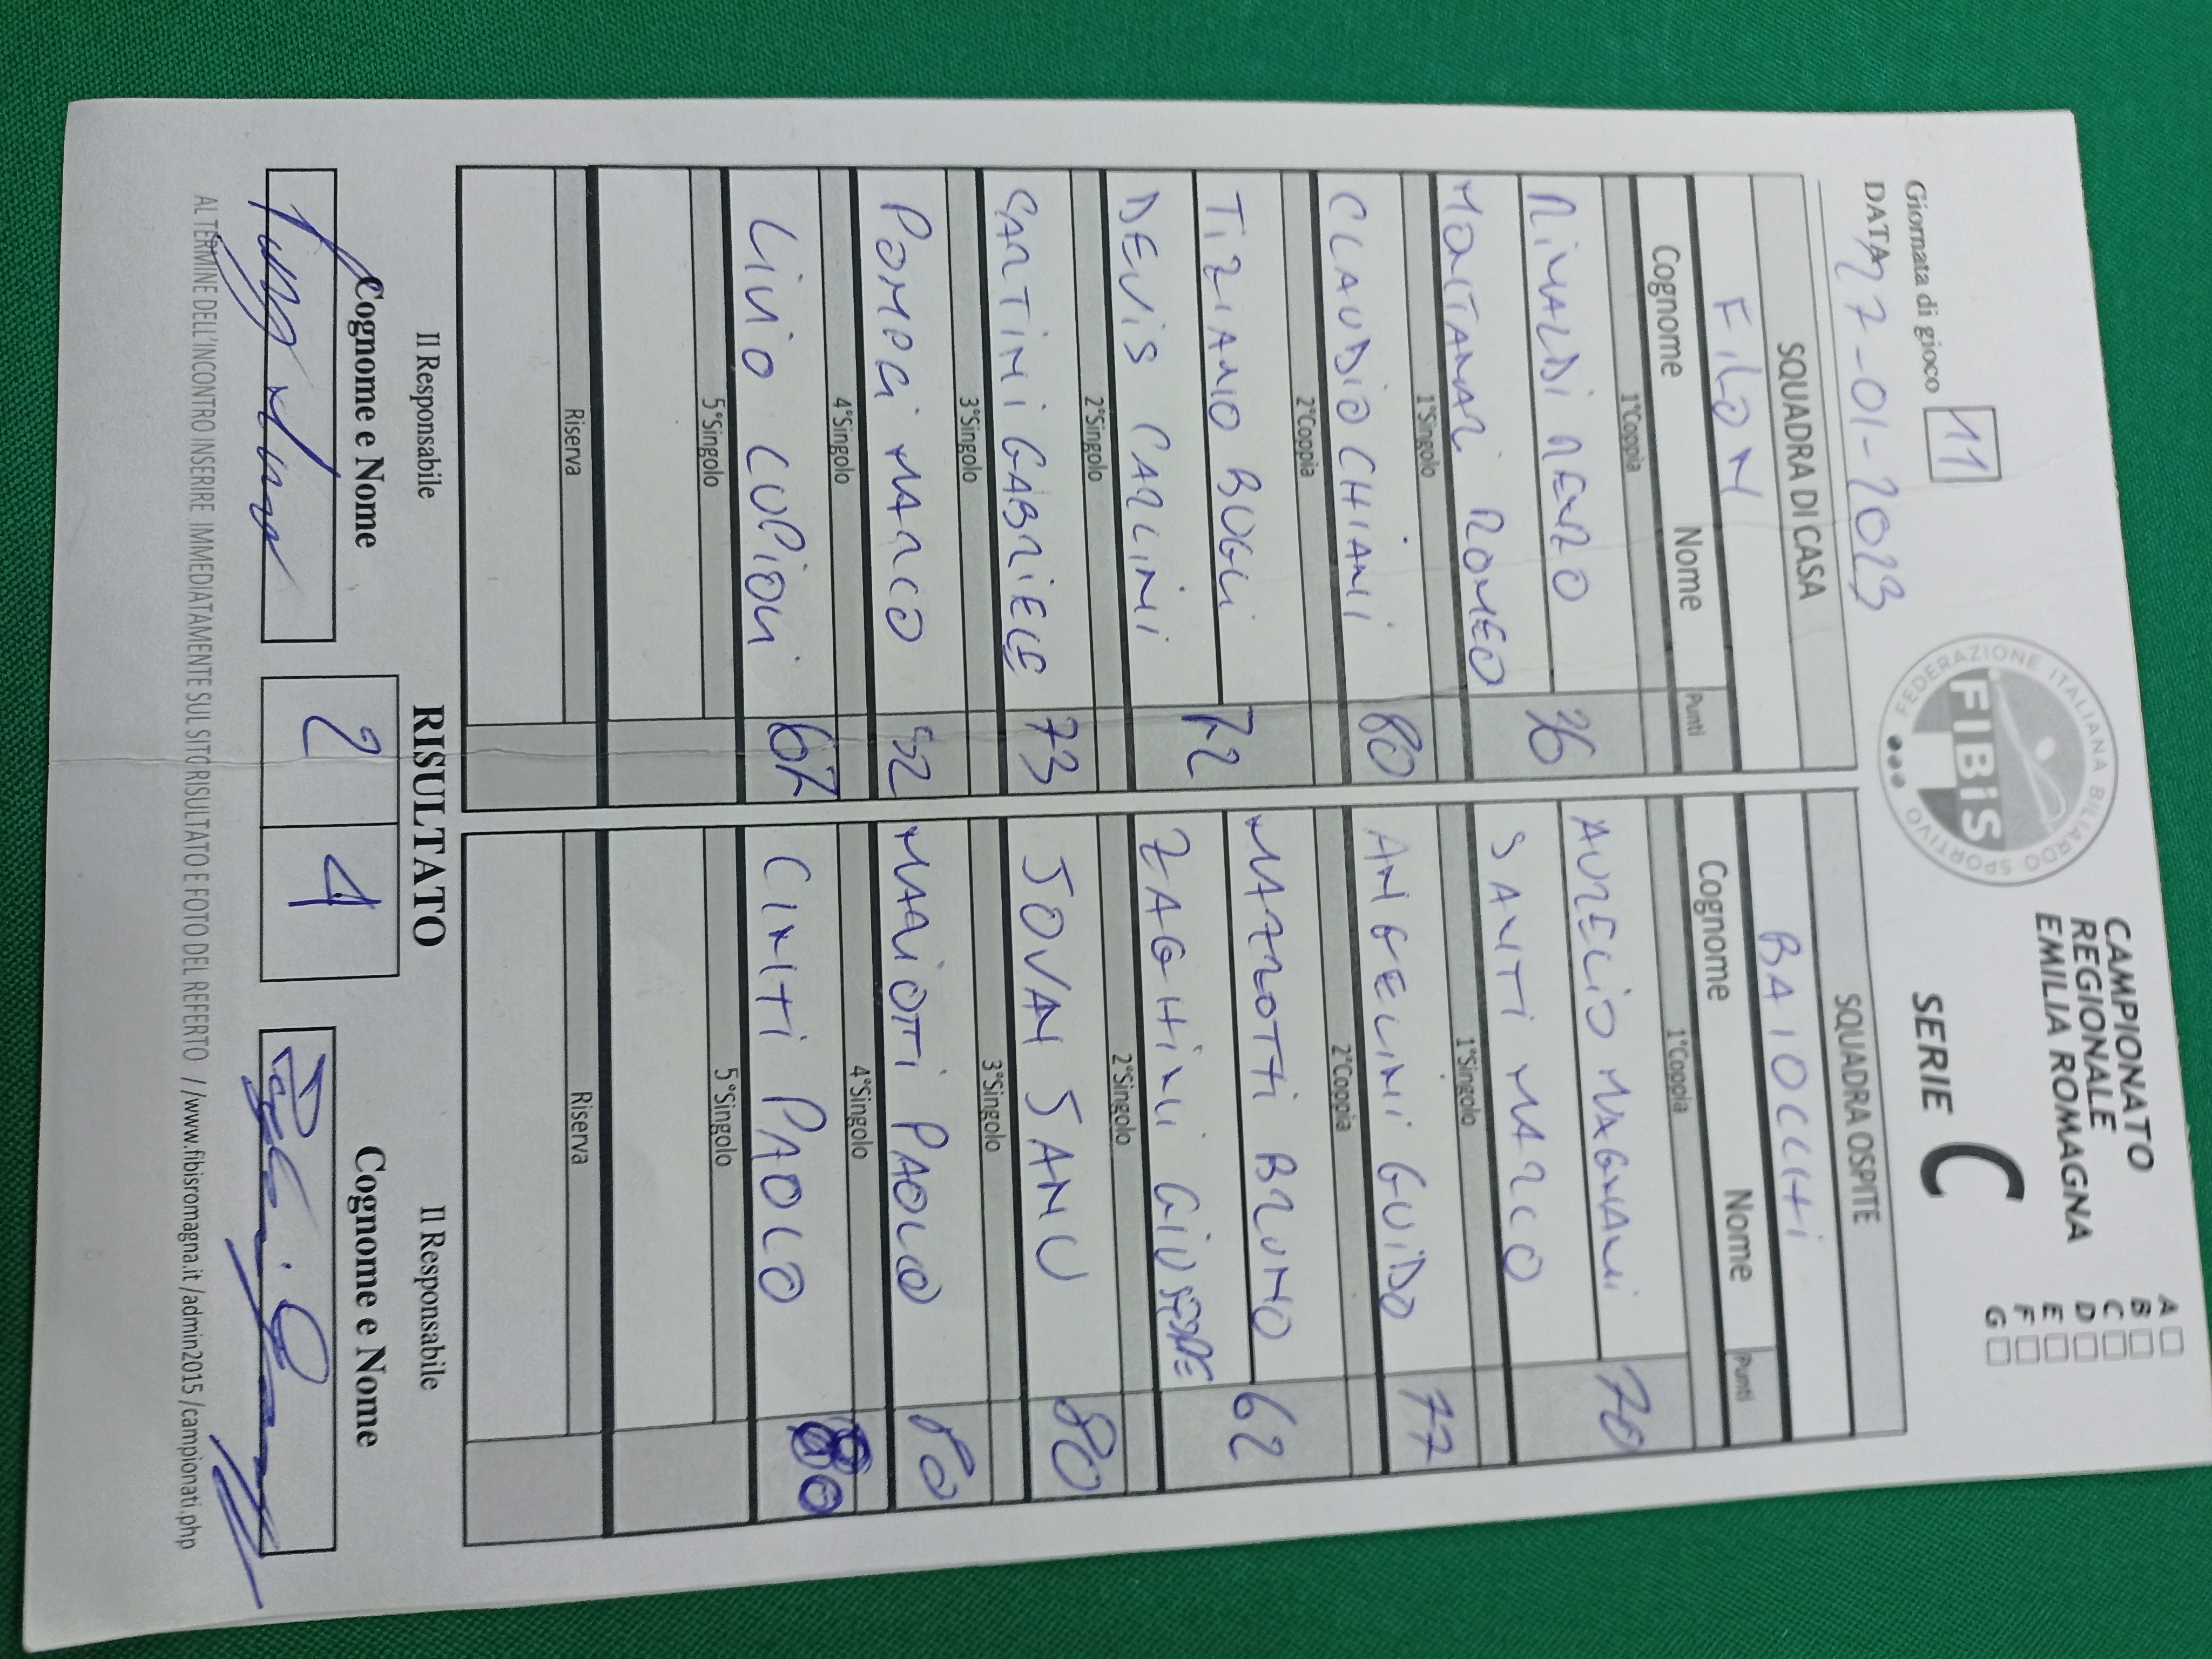 CAMPIONATO
REGIONALE
EMILIA ROMAGNA
A
B
C
D
E
F
G
FEDERAZIONE ITALIANA BILIARDO SPORTIVO
FIBiS
SERIE C
Giornata di gioco 11
DATA 17-01-2023
SQUADRA DI CASA SQUADRA OSPITE
FILON BAIOCCHI
Cognome Nome Punti Cognome Nome Punti
1°Coppia 1°Coppia
RINALDI RENZO 26 AURELIO MAGNANI 70
MONTANARI ROMEO SANTI MARCO
1°Singolo 1°Singolo
CLAUDIO CHIANI 80 ANGELINI GUIDO 77
2°Coppia 2°Coppia
TIZIANO BUGLI 72 MAZZOTTI BRUNO 62
DEVIS CARLINI ZAGHINI GIUSEPPE
2°Singolo 2°Singolo
SARTINI GABRIELE 73 JOVAN SANU 80
3°Singolo 3°Singolo
POMPGI MARCO 52 MARIOTTI PAOLO 80
4°Singolo 4°Singolo
LIVIO LUPIONI 67 CINTI PAOLO 80
5°Singolo 5°Singolo
Riserva Riserva
Il Responsabile RISULTATO Il Responsabile
Cognome e Nome 2 4 Cognome e Nome
AL TERMINE DELL'INCONTRO INSERIRE IMMEDIATAMENTE SUL SITO RISULTATO E FOTO DEL REFERTO //www.fibisromagna.it/admin2015/campionati.php